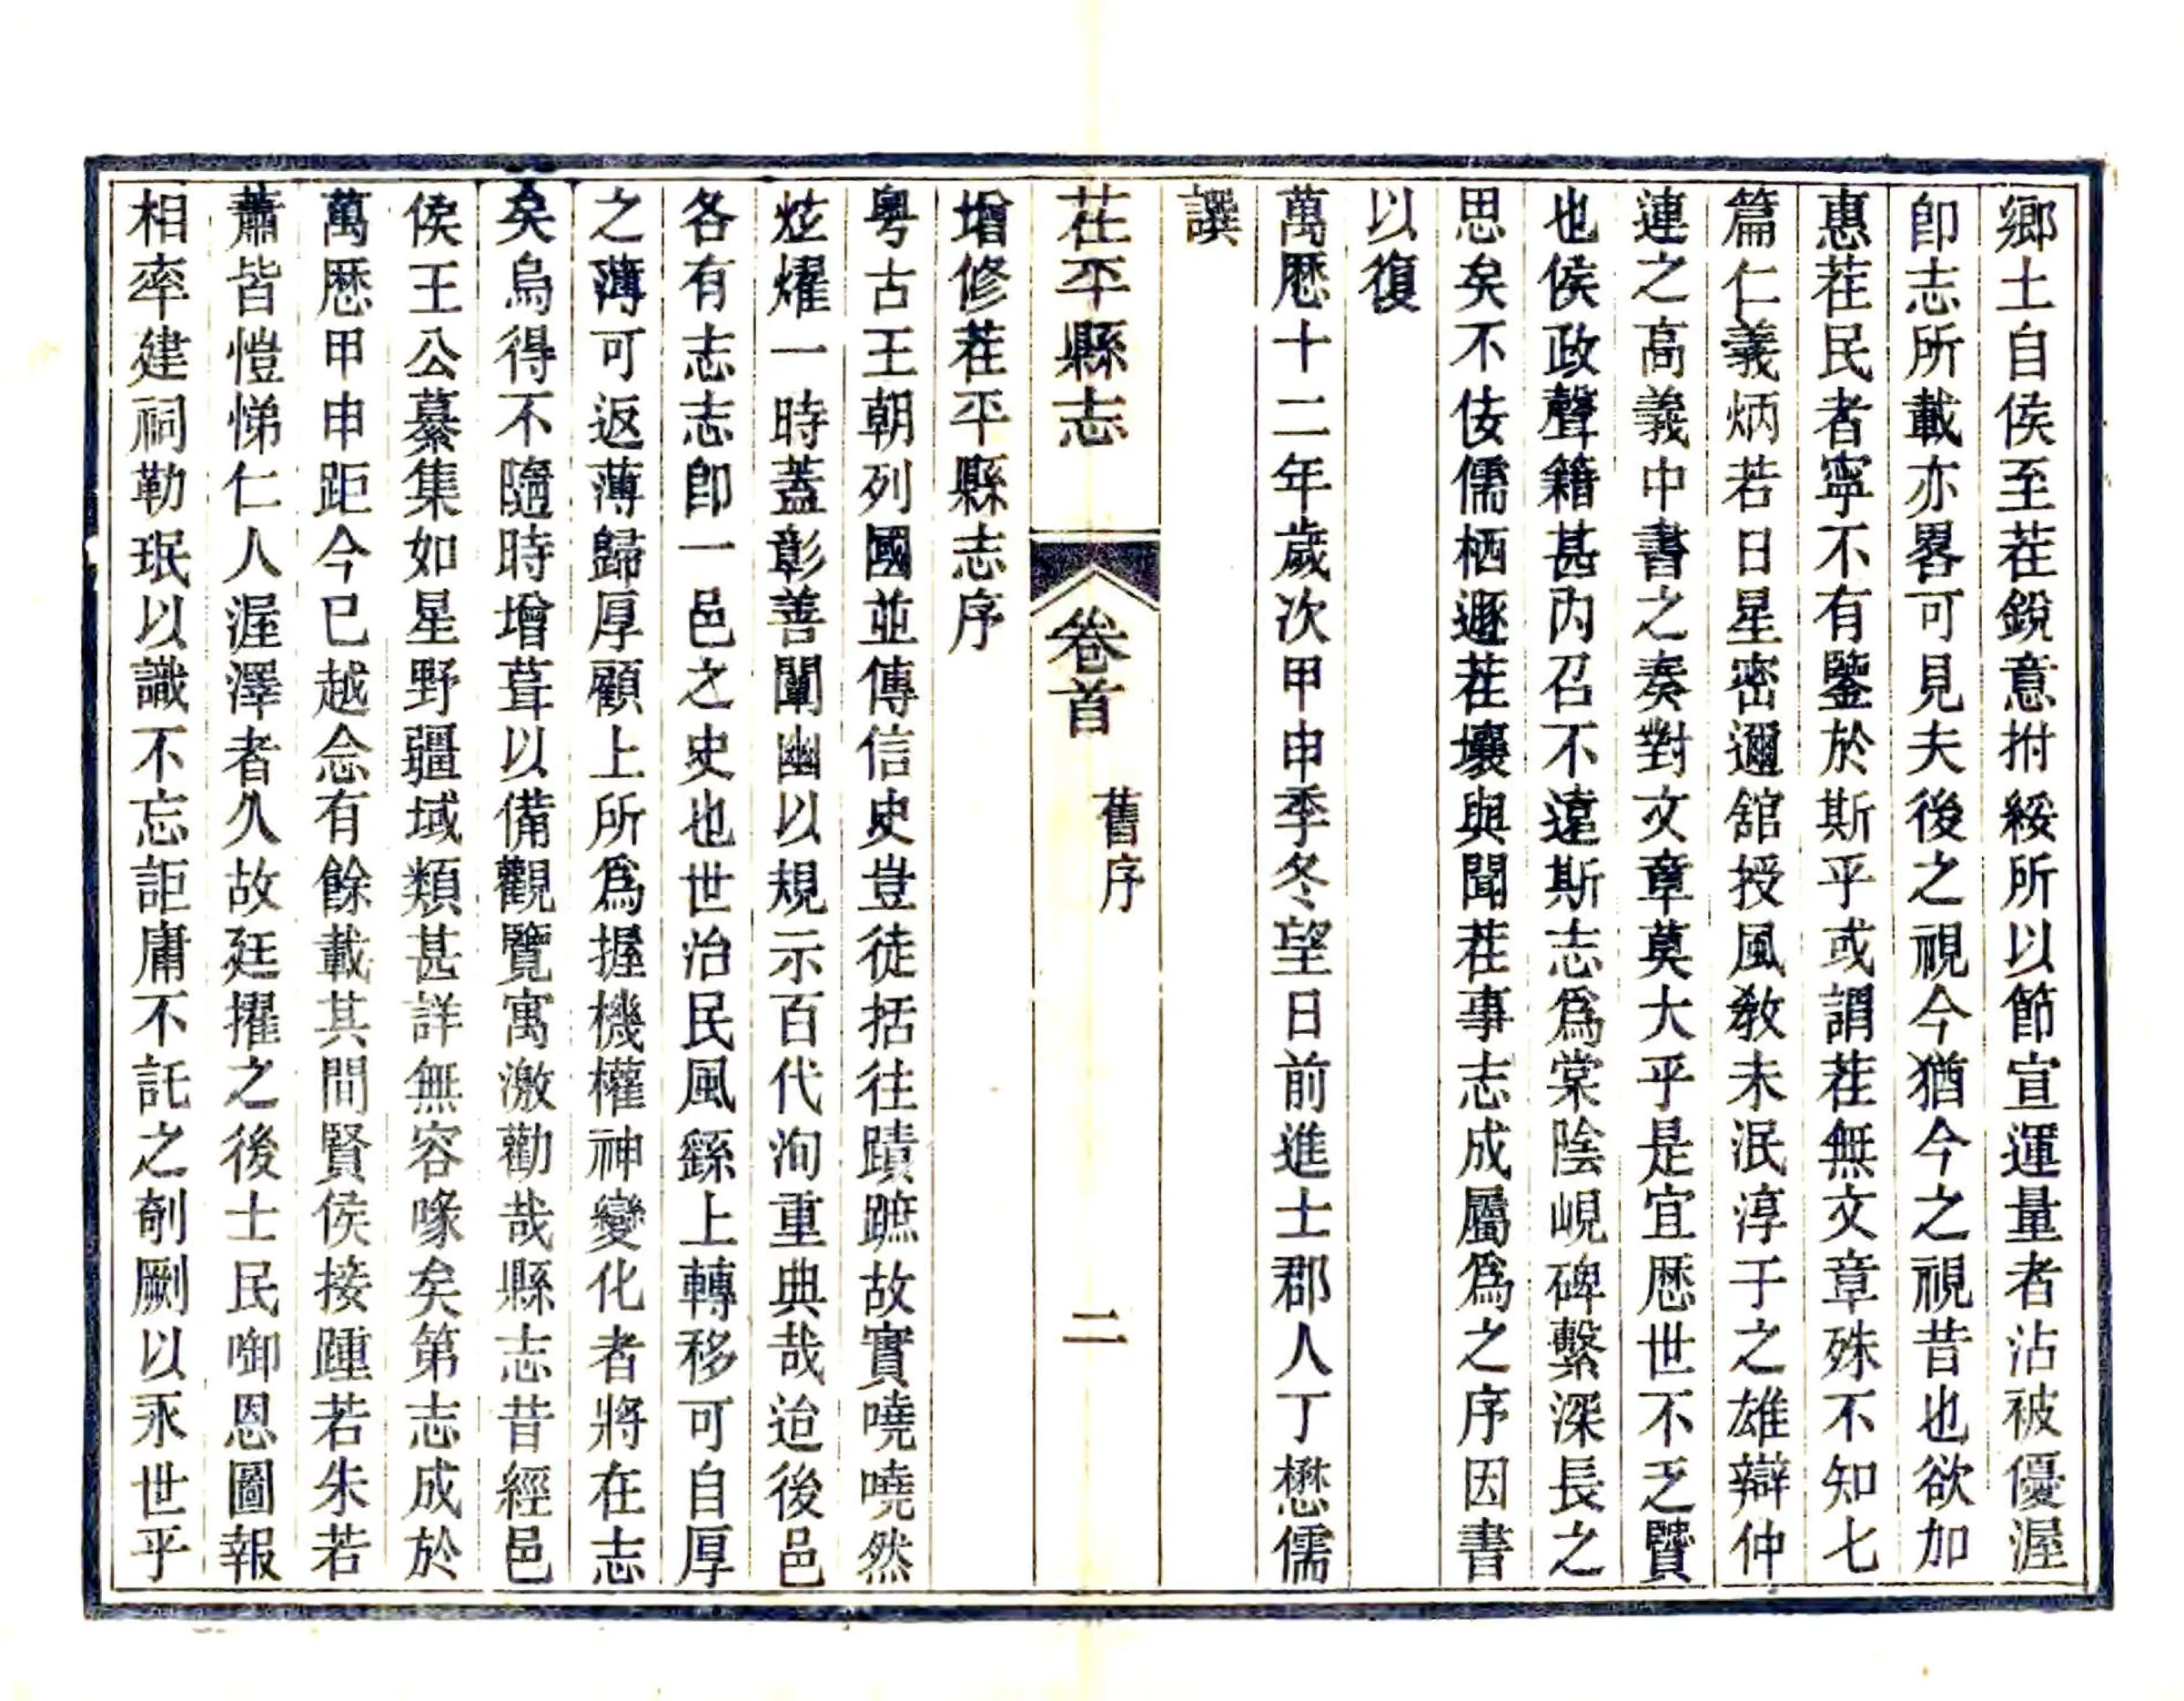 鄉土自侯至茬銳意拊綏所以節宣運量者沾被優渥
卽志所載亦畧可見夫後之視今猶今之視昔也欲加
惠茬民者寧不有鑒於斯乎或謂茬無文章殊不知七
篇仁義炳若日星密邇舘授風敎未泯淳于之雄辯仲
連之高義中書之奏對文章莫大乎是宜歷世不乏賢
也侯政聲籍甚內召不遠斯志爲棠陰峴碑繫深長之
思矣不佞儒栖遯茬壤與聞茬事志成屬爲之序因書
以復
萬歷十二年歲次甲申季冬望日前進士郡人丁懋儒
譔
茬平縣志
卷首
舊序
二
增修茬平縣志序
粤古王朝列國並傳信史豈徒括往蹟蹠故實嘵嘵然
炫燿一時蓋彰善闡幽以規示百代洵重典哉迨後邑
各有志志卽一邑之史也世治民風繇上轉移可自厚
之薄可返薄歸厚顧上所爲握機權神變化者將在志
矣烏得不隨時增葺以備觀覽寓激勸哉縣志昔經邑
侯王公纂集如星野疆域類甚詳無容喙矣第志成於
萬歷甲申距今已越念有餘載其間賢侯接踵若朱若
蕭皆愷悌仁人渥澤者久故廷擢之後士民啣恩圖報
相率建祠勒珉以識不忘詎庸不託之剞劂以永世乎